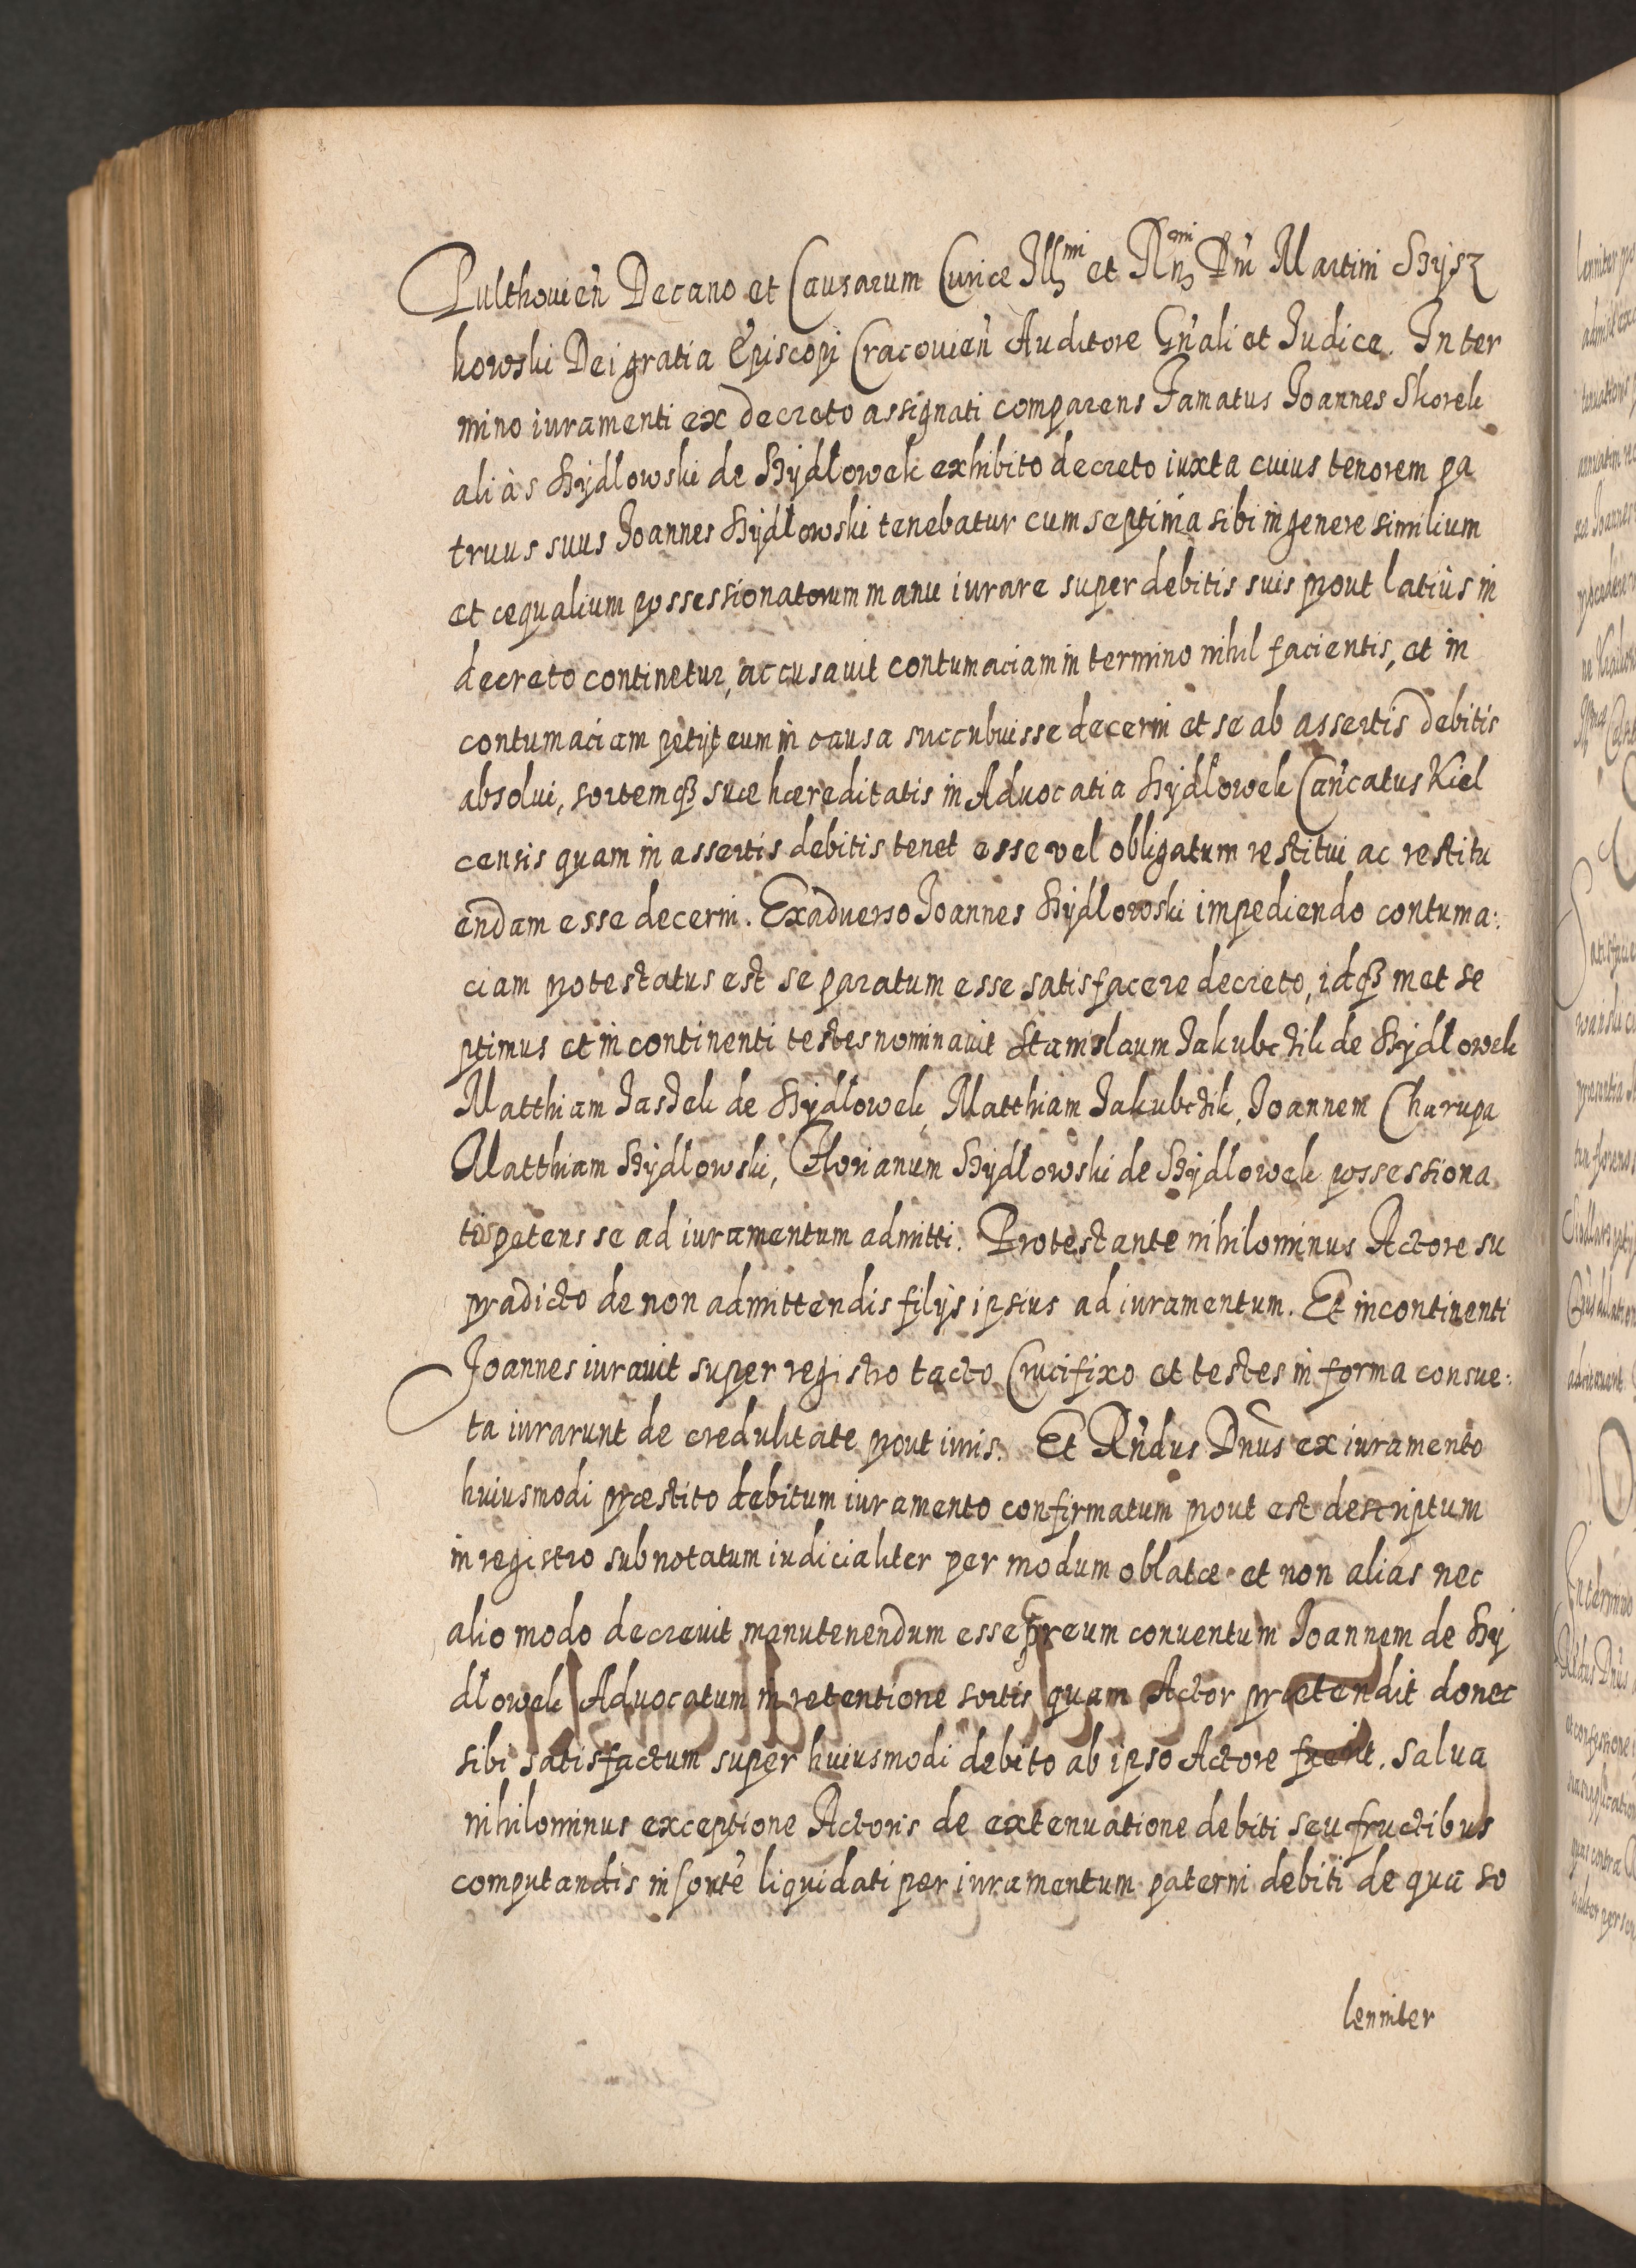 Pulthouień Decano et Causarum Curiæ Illmi et Rmi Dni Martini Szysz
kowski Dei gratia Episcopi Cracouień Auditore Gnali et Iudice. In ter
mino iuramenti ex decreto assignati comparens Famatus Ioannes Skorek
aliàs Szydlowski de Szydlowek exhibito decreto iuxta cuius tenorem pa
truus suus Ioannes Szydlowski tenebatur cum septima sibi in genere similium
et æqualium possessionatorum manu iurare super debitis suis prout latiùs in
decreto continetur, accusauit contumaciam in termino nihil facientis, et in
contumaciam petyt eum in causa succubuisse decerni et se ab assertis debitis
absolui, sortemq3 suæ hæreditatis in Aduocatia Szydlowek Cancatus Kiel
censis quam in assertis debitis tenet esse vel obligatum restitui ac restitu
endam esse decerni. Exaduerso Ioannes Szydlowski impediendo contuma:
ciam protestatus est se paratum esse satisfacere decreto, idq3 met se
ptimus et in continenti testes nominauit Stanislaum Iakubczik de Szydlowek
Matthiam Iaszek de Szydlowek, Matthiam Iakubczik, Ioannem Charupa
Matthiam Szydlowski, Florianum Szydlowski de Szydlowek possessiona
tos petens se ad iuramentum admitti. Protestante nihilominus Actore su
pradicto de non admittendis filys ipsius ad iuramentum. Et incontinenti
Ioannes iurauit super registro tacto Crucifixo et testes in forma consue:
ta iurarunt de credulitate prout iuris. Et Rndus Dnus ex iuramento
huiusmodi præstito debitum iuramento confirmatum prout est descriptum
in registro subnotatum iudicialiter per modum oblatæ et non alias nec
alio modo decreuit manutenendum esse reum conuentum Ioannem de Szy
dlowek Aduocatum in retentione sortis quam Actor prætendit donec
sibi satisfactum super huiusmodi debito ab ipso Actore fuerit. Salua
nihilominus exceptione Actoris de extenuatione debiti seu fructibus
computandis in sortē liquidati per iuramentum paterni debiti de qua so
lenniter